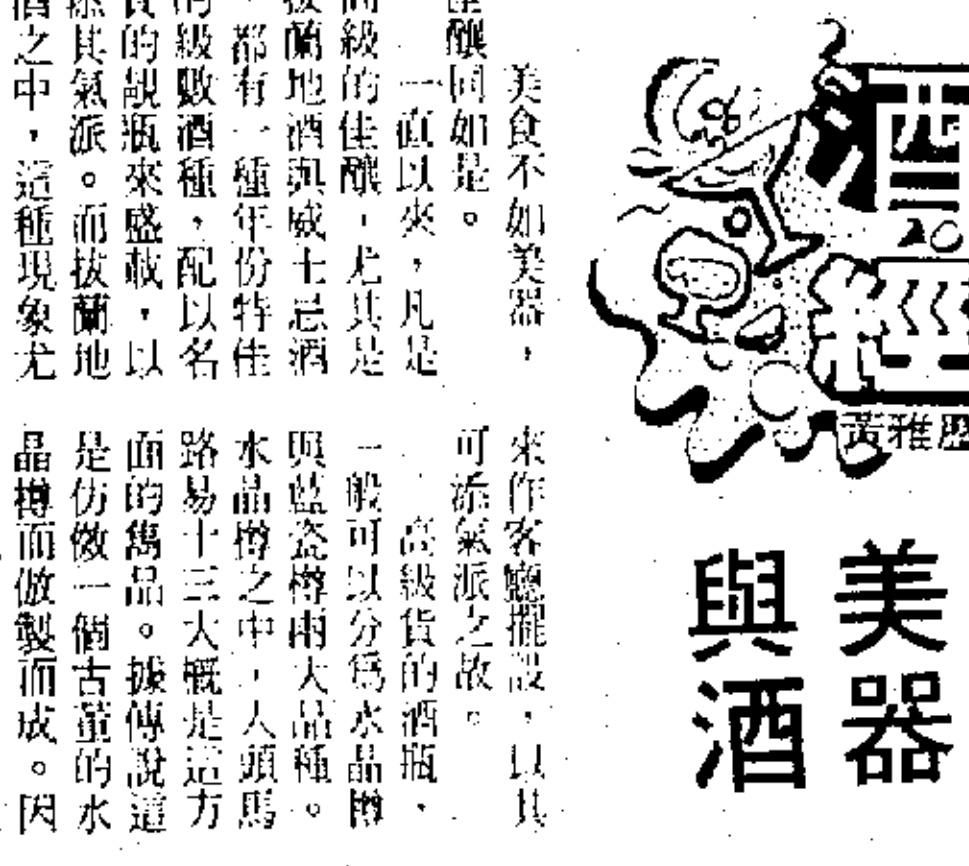 酒經
20
黃雅歷
美器
與酒
美食不如美器，
釀同如是。
一直以來，凡是
級的佳釀，尤其是
蘭地酒與威士忌酒
，都有一種年份特佳
的級數酒種，配以名
貴的靚瓶來盛載，以
添其氣派。而拔蘭地
酒之中，這種現象尤
來作客廳擺設，以其
可添氣派之故。
高級貨的酒瓶，
一般可以分爲水晶樽
與藍瓷樽兩大品種。
水晶樽之中，人頭馬
路易十三大概是這方
面的雋品。據傳說這
是仿傚一個古董的水
晶樽而倣製而成。因